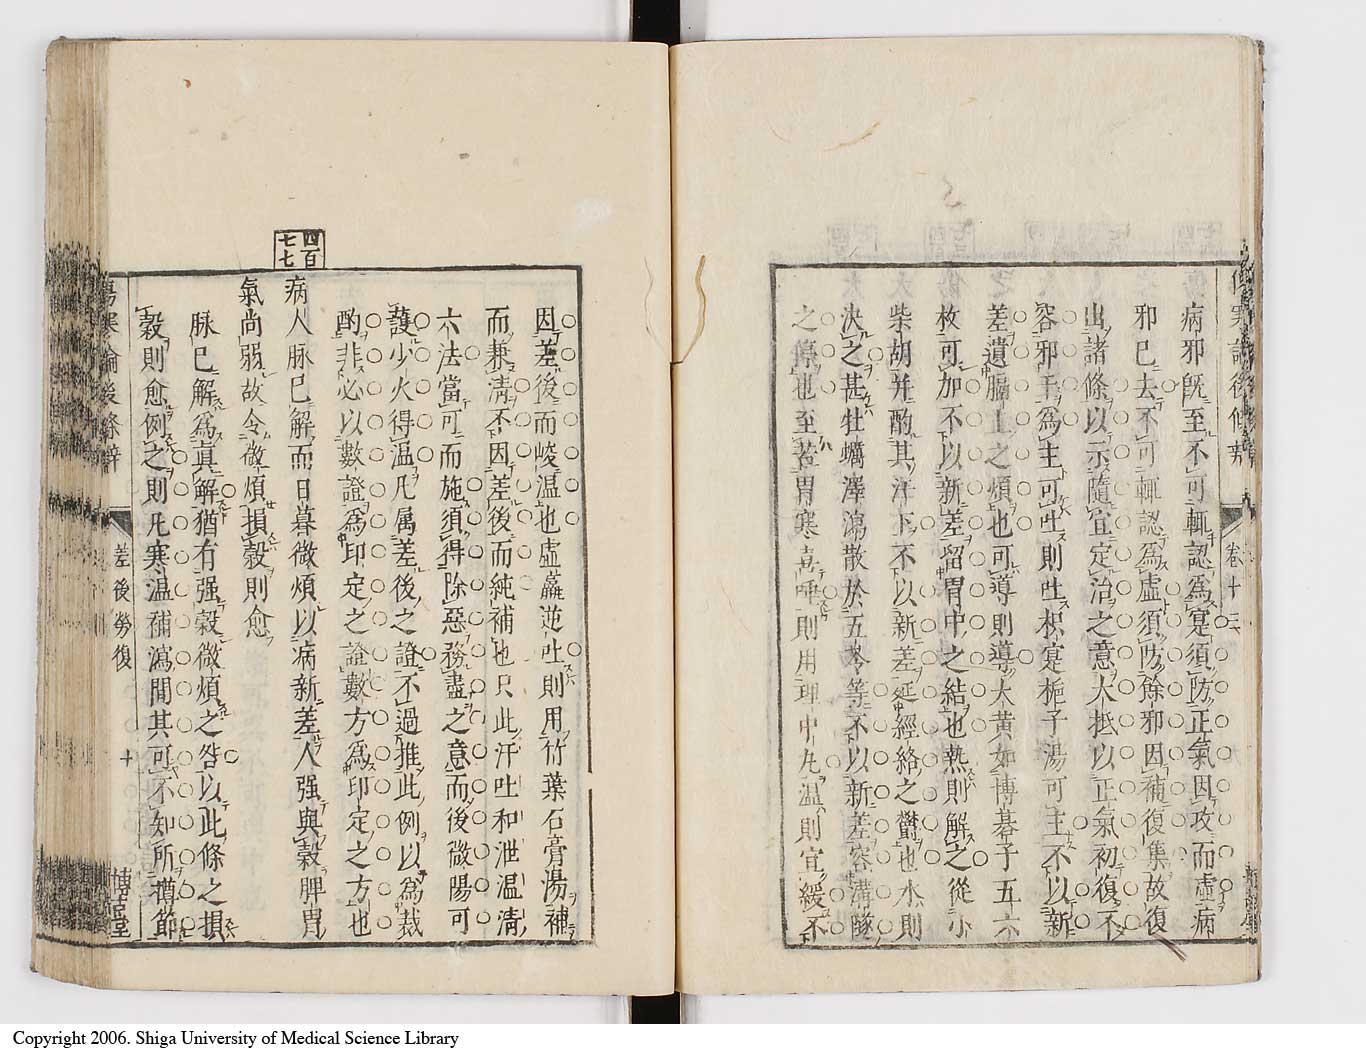 傷寒論後條辨
卷十三
病邪旣至不可輒認爲寔須防正氣因攻而虛病
邪已去不可輒認爲虛須防餘邪因補復集故復
出諸條以示隨宜定治之意大抵以正氣初復不
容邪干爲主可吐則吐枳寔梔子湯可主不以新
差遺膈上之煩也可導則導大黄如博碁子五六
枚可加不以新差留胃中之結也熱則解之從小
柴胡幷酌其汗下不以新差延經絡之鬱也水則
決之甚牡蠣澤瀉散於五苓等不以新差容溝隧
之停也至若胃寒喜唾則用理中丸温則宜緩不
因差後而峻温也虛羸逆吐則用竹葉石膏湯補
而兼淸不因差後而純補也只此汗吐和泄温淸
六法當可而施須得除惡務盡之意而後微陽可
護少火得温凡属差後之證不過推此例以爲裁
酌非必以數證爲印定之證數方爲印定之方也
四百七七
病人脉已解而日暮微煩以病新差人强與穀脾胃
氣尚弱故令微煩損穀則愈
脉已解爲眞解猶有强穀微煩之咎以此條之損
穀則愈例之則凡寒温補瀉間其可不知所撙節
傷寒論後條辨
差後勞復
十
博古堂
Copyright 2006. Shiga University of Medical Science Library